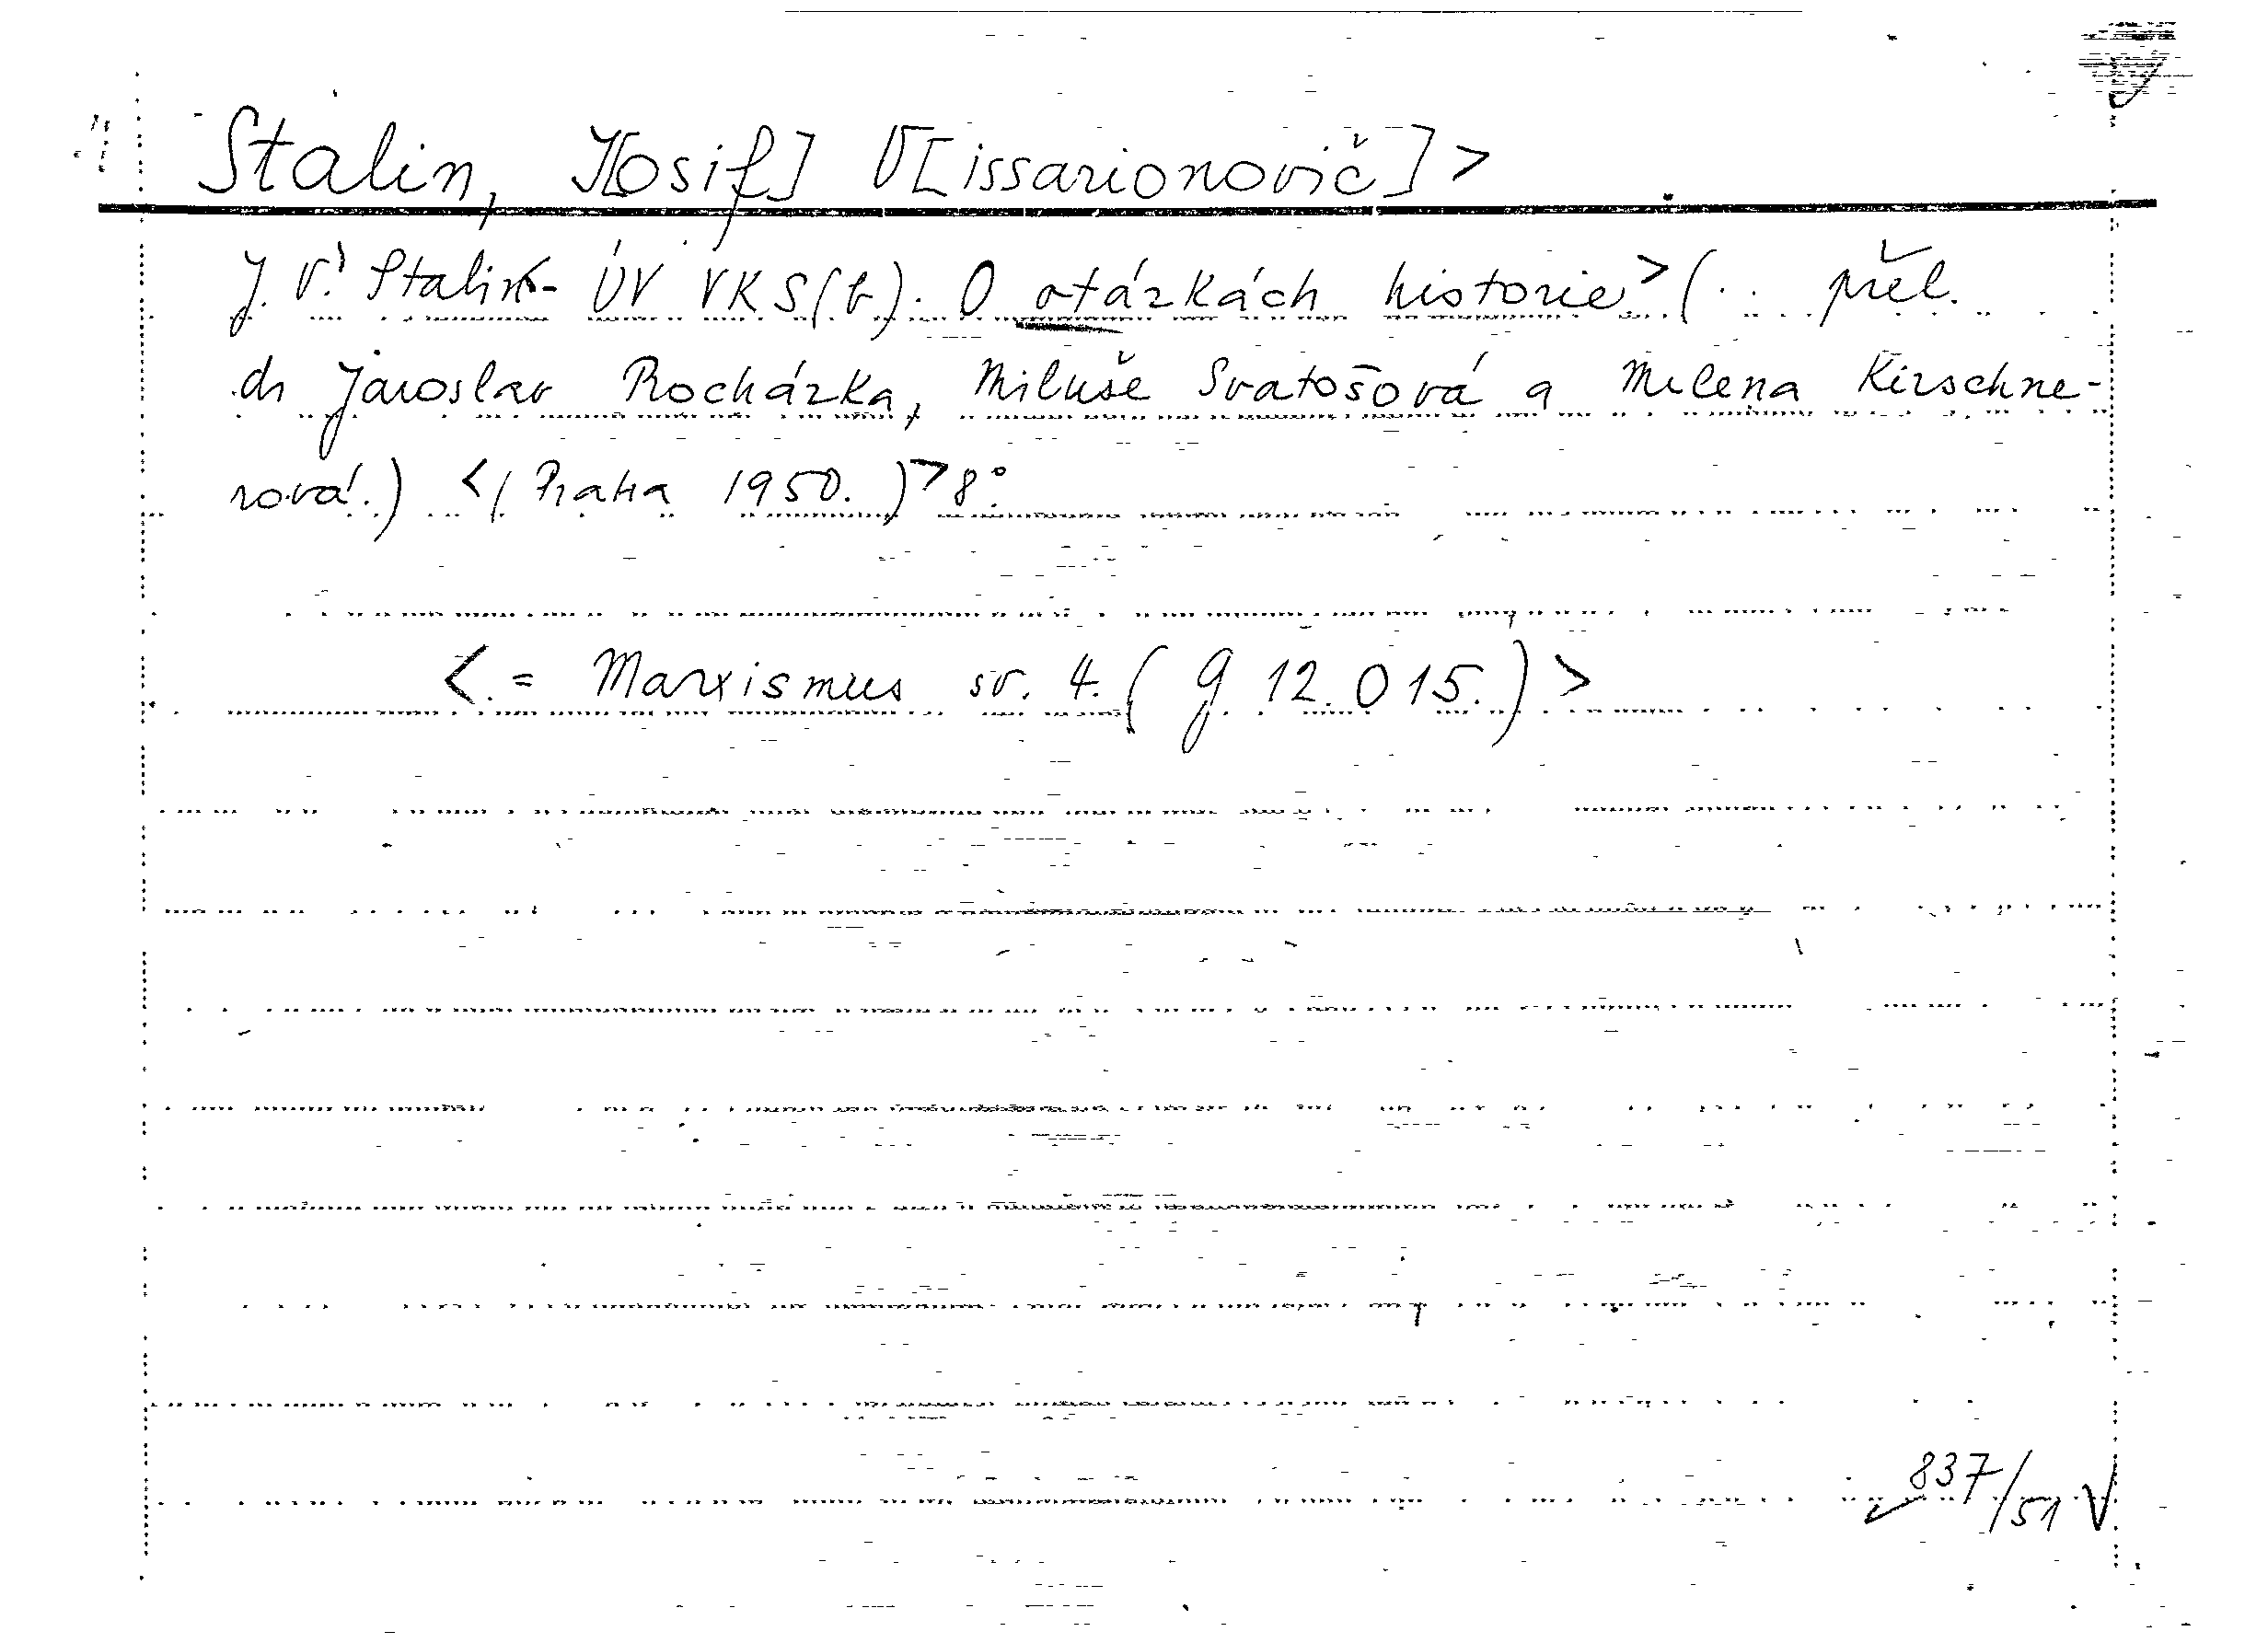 Stalin, J[osif] V[issarionovič] >
J. V. Stalin - ÚV VKS(b). O otázkách historie > (.. přel.
dr Jaroslav Procházka, Miluše Svatošová a Milena Kirschne-
rová.) < (Praha 1950.) > 8°.
< = Marxismus sv. 4. (g 12.015.) >
837/51 V